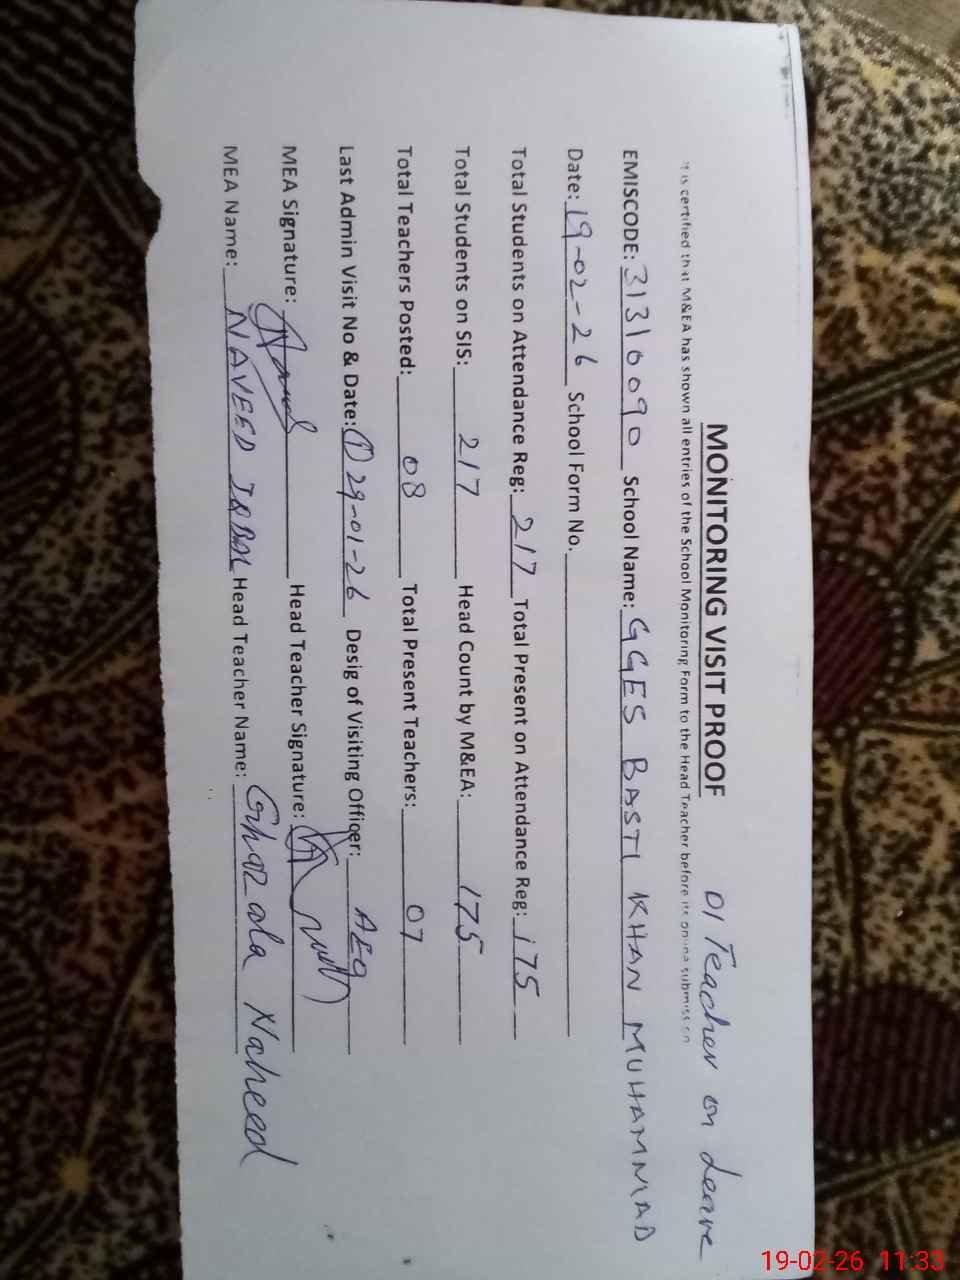 MONITORING VISIT PROOF 01 Teacher on Leave
It is certified that M&EA has shown all entries of the School Monitoring Form to the Head Teacher before its online submission
EMISCODE: 31310090 School Name: GGES BASTI KHAN MUHAMMAD
Date: 19-02-26 School Form No.
Total Students on Attendance Reg: 217 Total Present on Attendance Reg: 175
Total Students on SIS: 217 Head Count by M&EA: 175
Total Teachers Posted: 08 Total Present Teachers: 07
Last Admin Visit No & Date: ① 29-01-26 Desig of Visiting Officer: AEO
MEA Signature: Head Teacher Signature:
MEA Name: NAVEED IQBAL Head Teacher Name: Ghazala Naheed
19-02-26 11:33